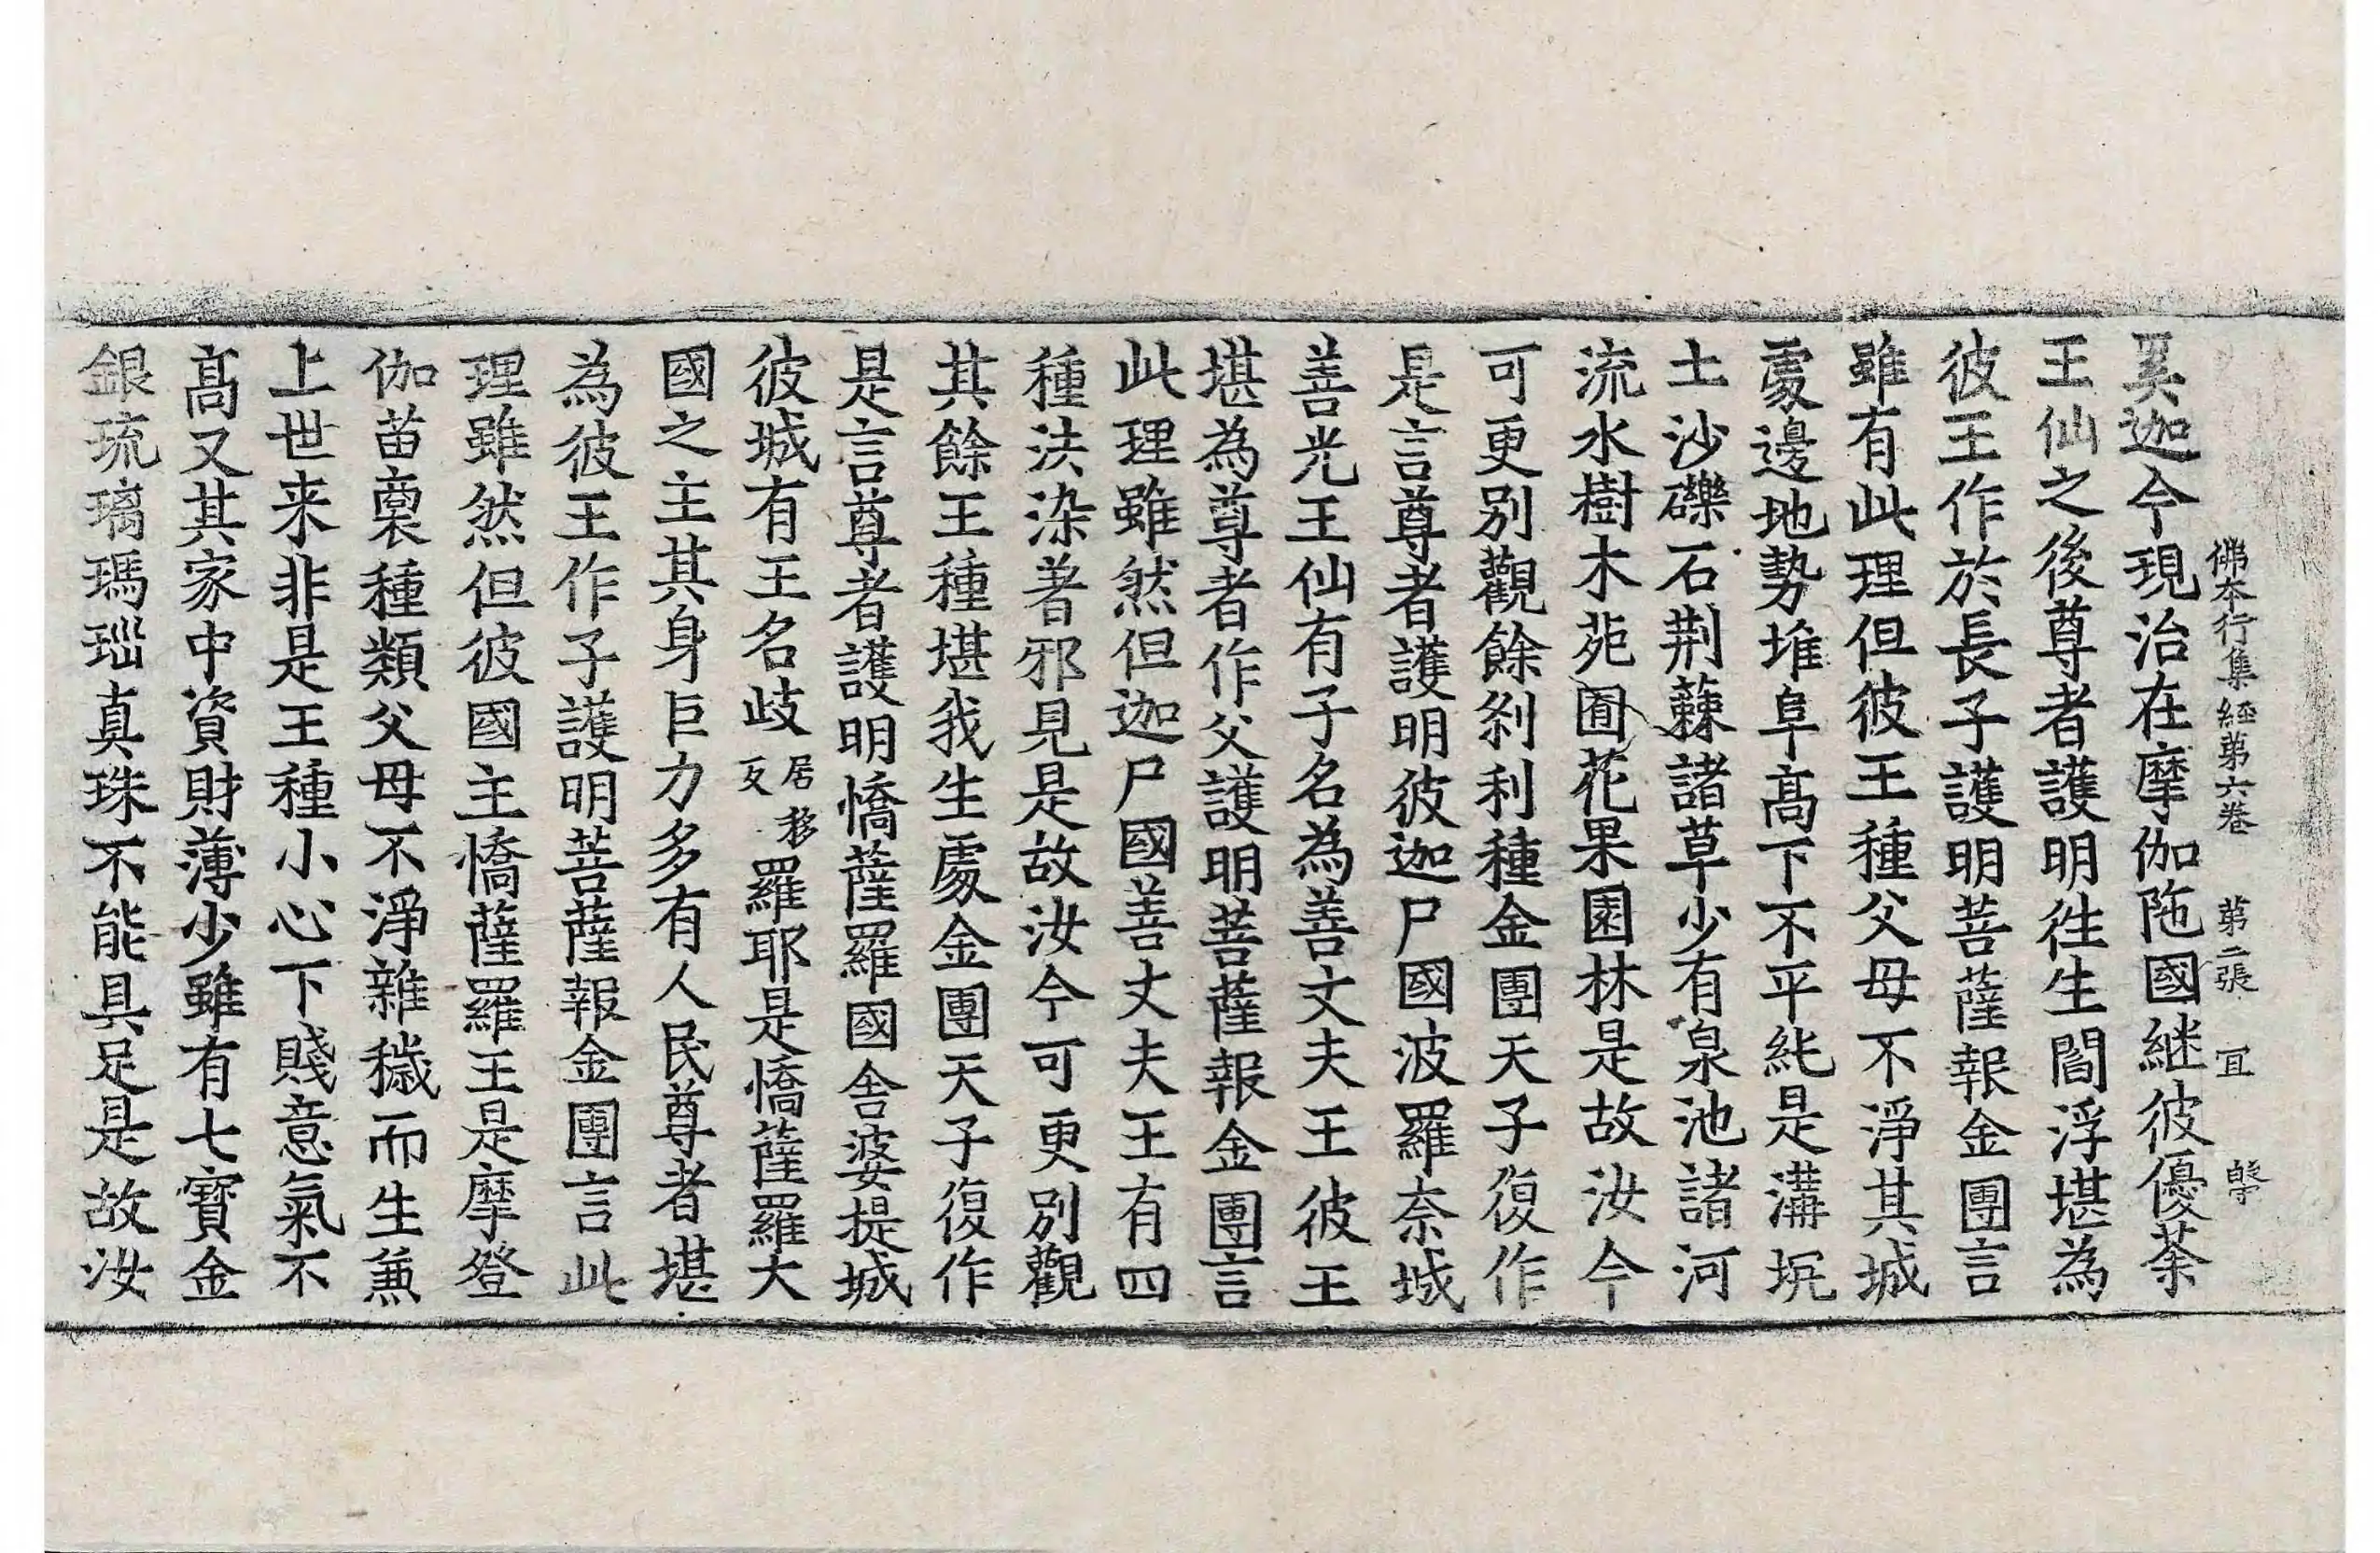 佛本行集經第六卷 第二張 冝
奚迦今現治在摩伽陁國継彼優荼
王仙之後尊者護明徃生閻浮堪為
彼王作於長子護明菩薩報金團言
雖有此理但彼王種父母不淨其城
處邊地勢堆阜髙下不平純是溝坑
土沙礫石荆蕀諸草少有泉池諸河
流水樹木苑囿花果園林是故汝今
可更別觀餘刹利種金團天子復作
是言尊者護明彼迦尸國波羅奈城
善光王仙有子名為善丈夫王彼王
堪為尊者作父護明菩薩報金團言
此理雖然但迦尸國善丈夫王有四
種法染著邪見是故汝今可更別觀
其餘王種堪我生處金團天子復作
是言尊者護明憍薩羅國舍婆提城
彼城有王名歧居移反羅耶是憍薩羅大
國之主其身巨力多有人民尊者堪
為彼王作子護明菩薩報金團言此
理雖然但彼國主憍薩羅王是摩登
伽苗裔種類父母不淨雜穢而生兼
上世来非是王種小心下賤意氣不
髙又其家中資財薄少雖有七寳金
銀琉璃瑪瑙真珠不能具足是故汝